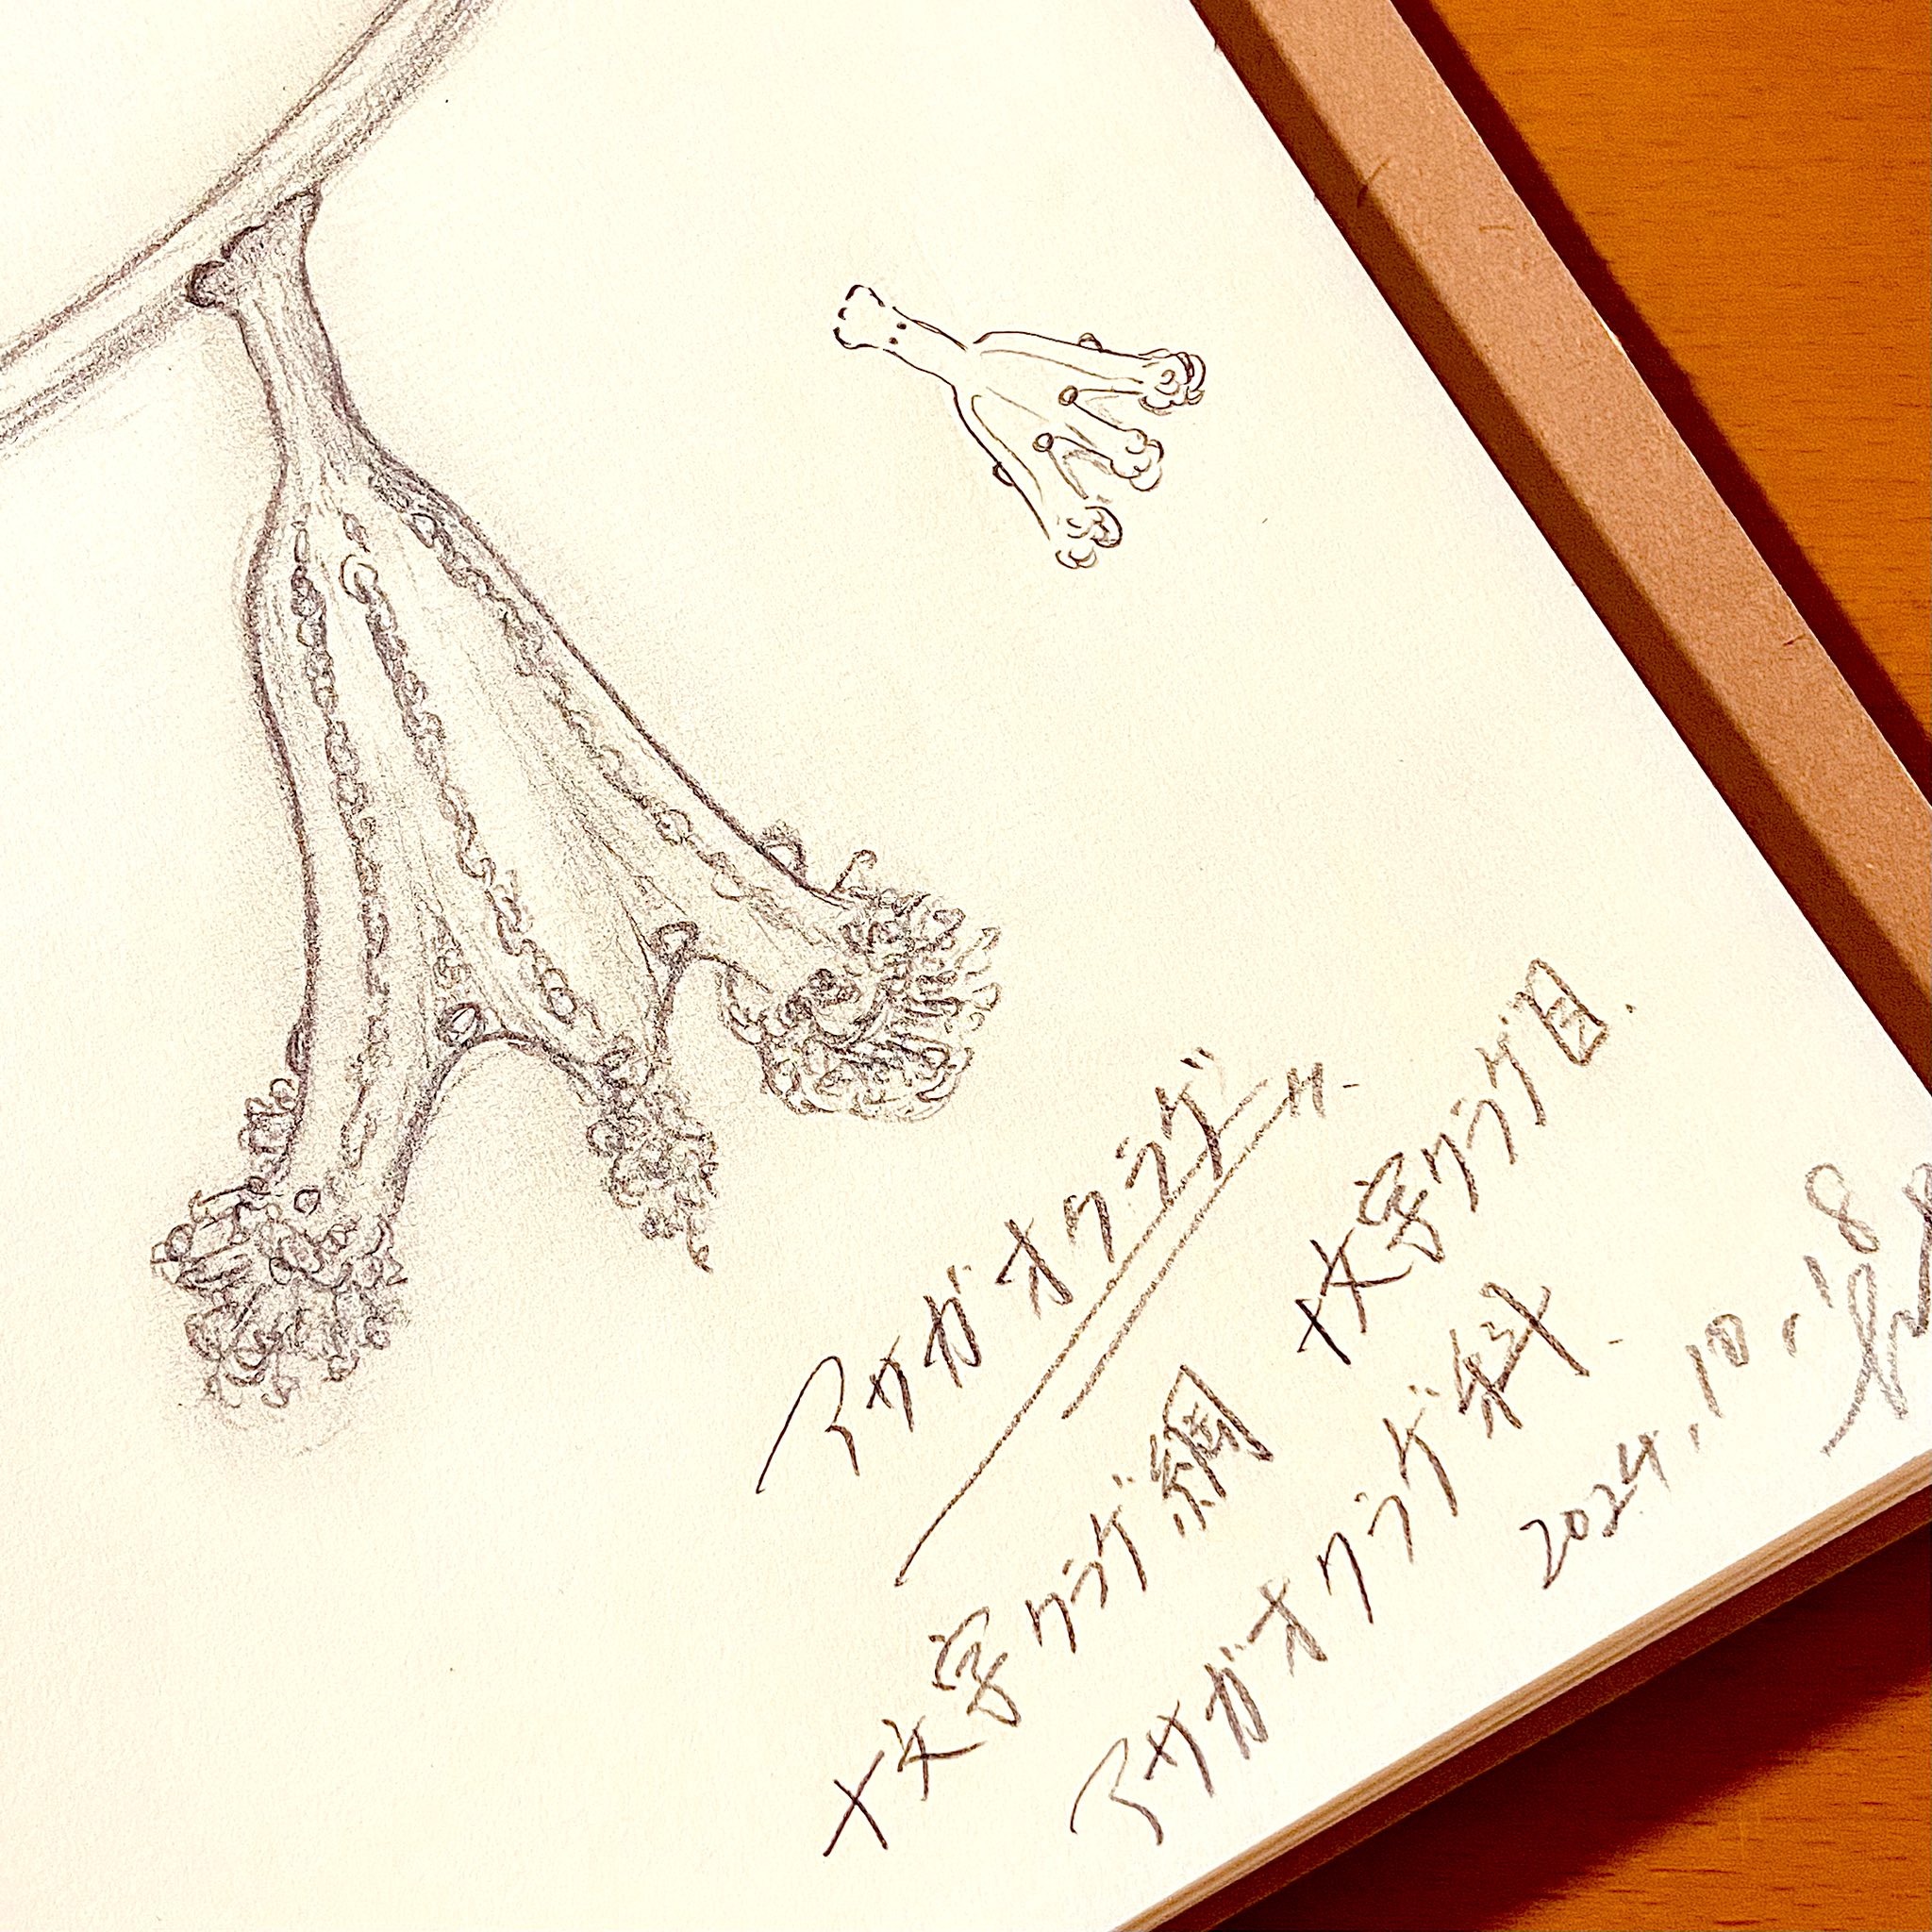 アサガオクラゲ
十文字クラゲ綱 十文字クラゲ目.
アサガオクラゲ科.
2024.10.18